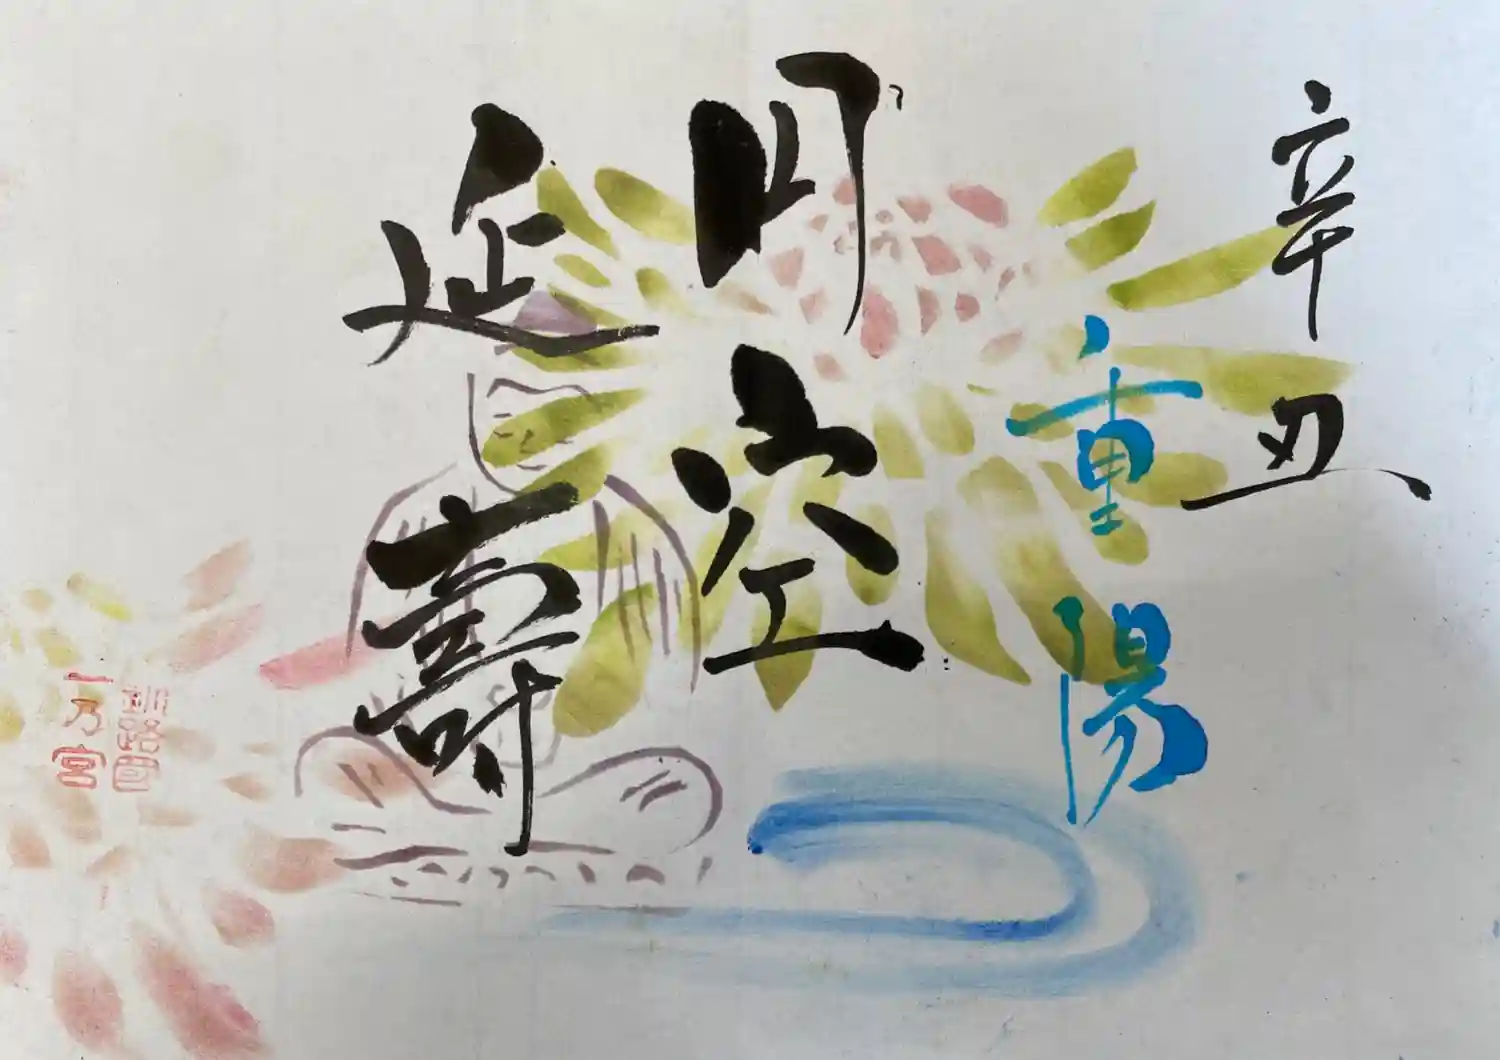 辛丑
重陽
円空
延壽
釧路国
一乃宮